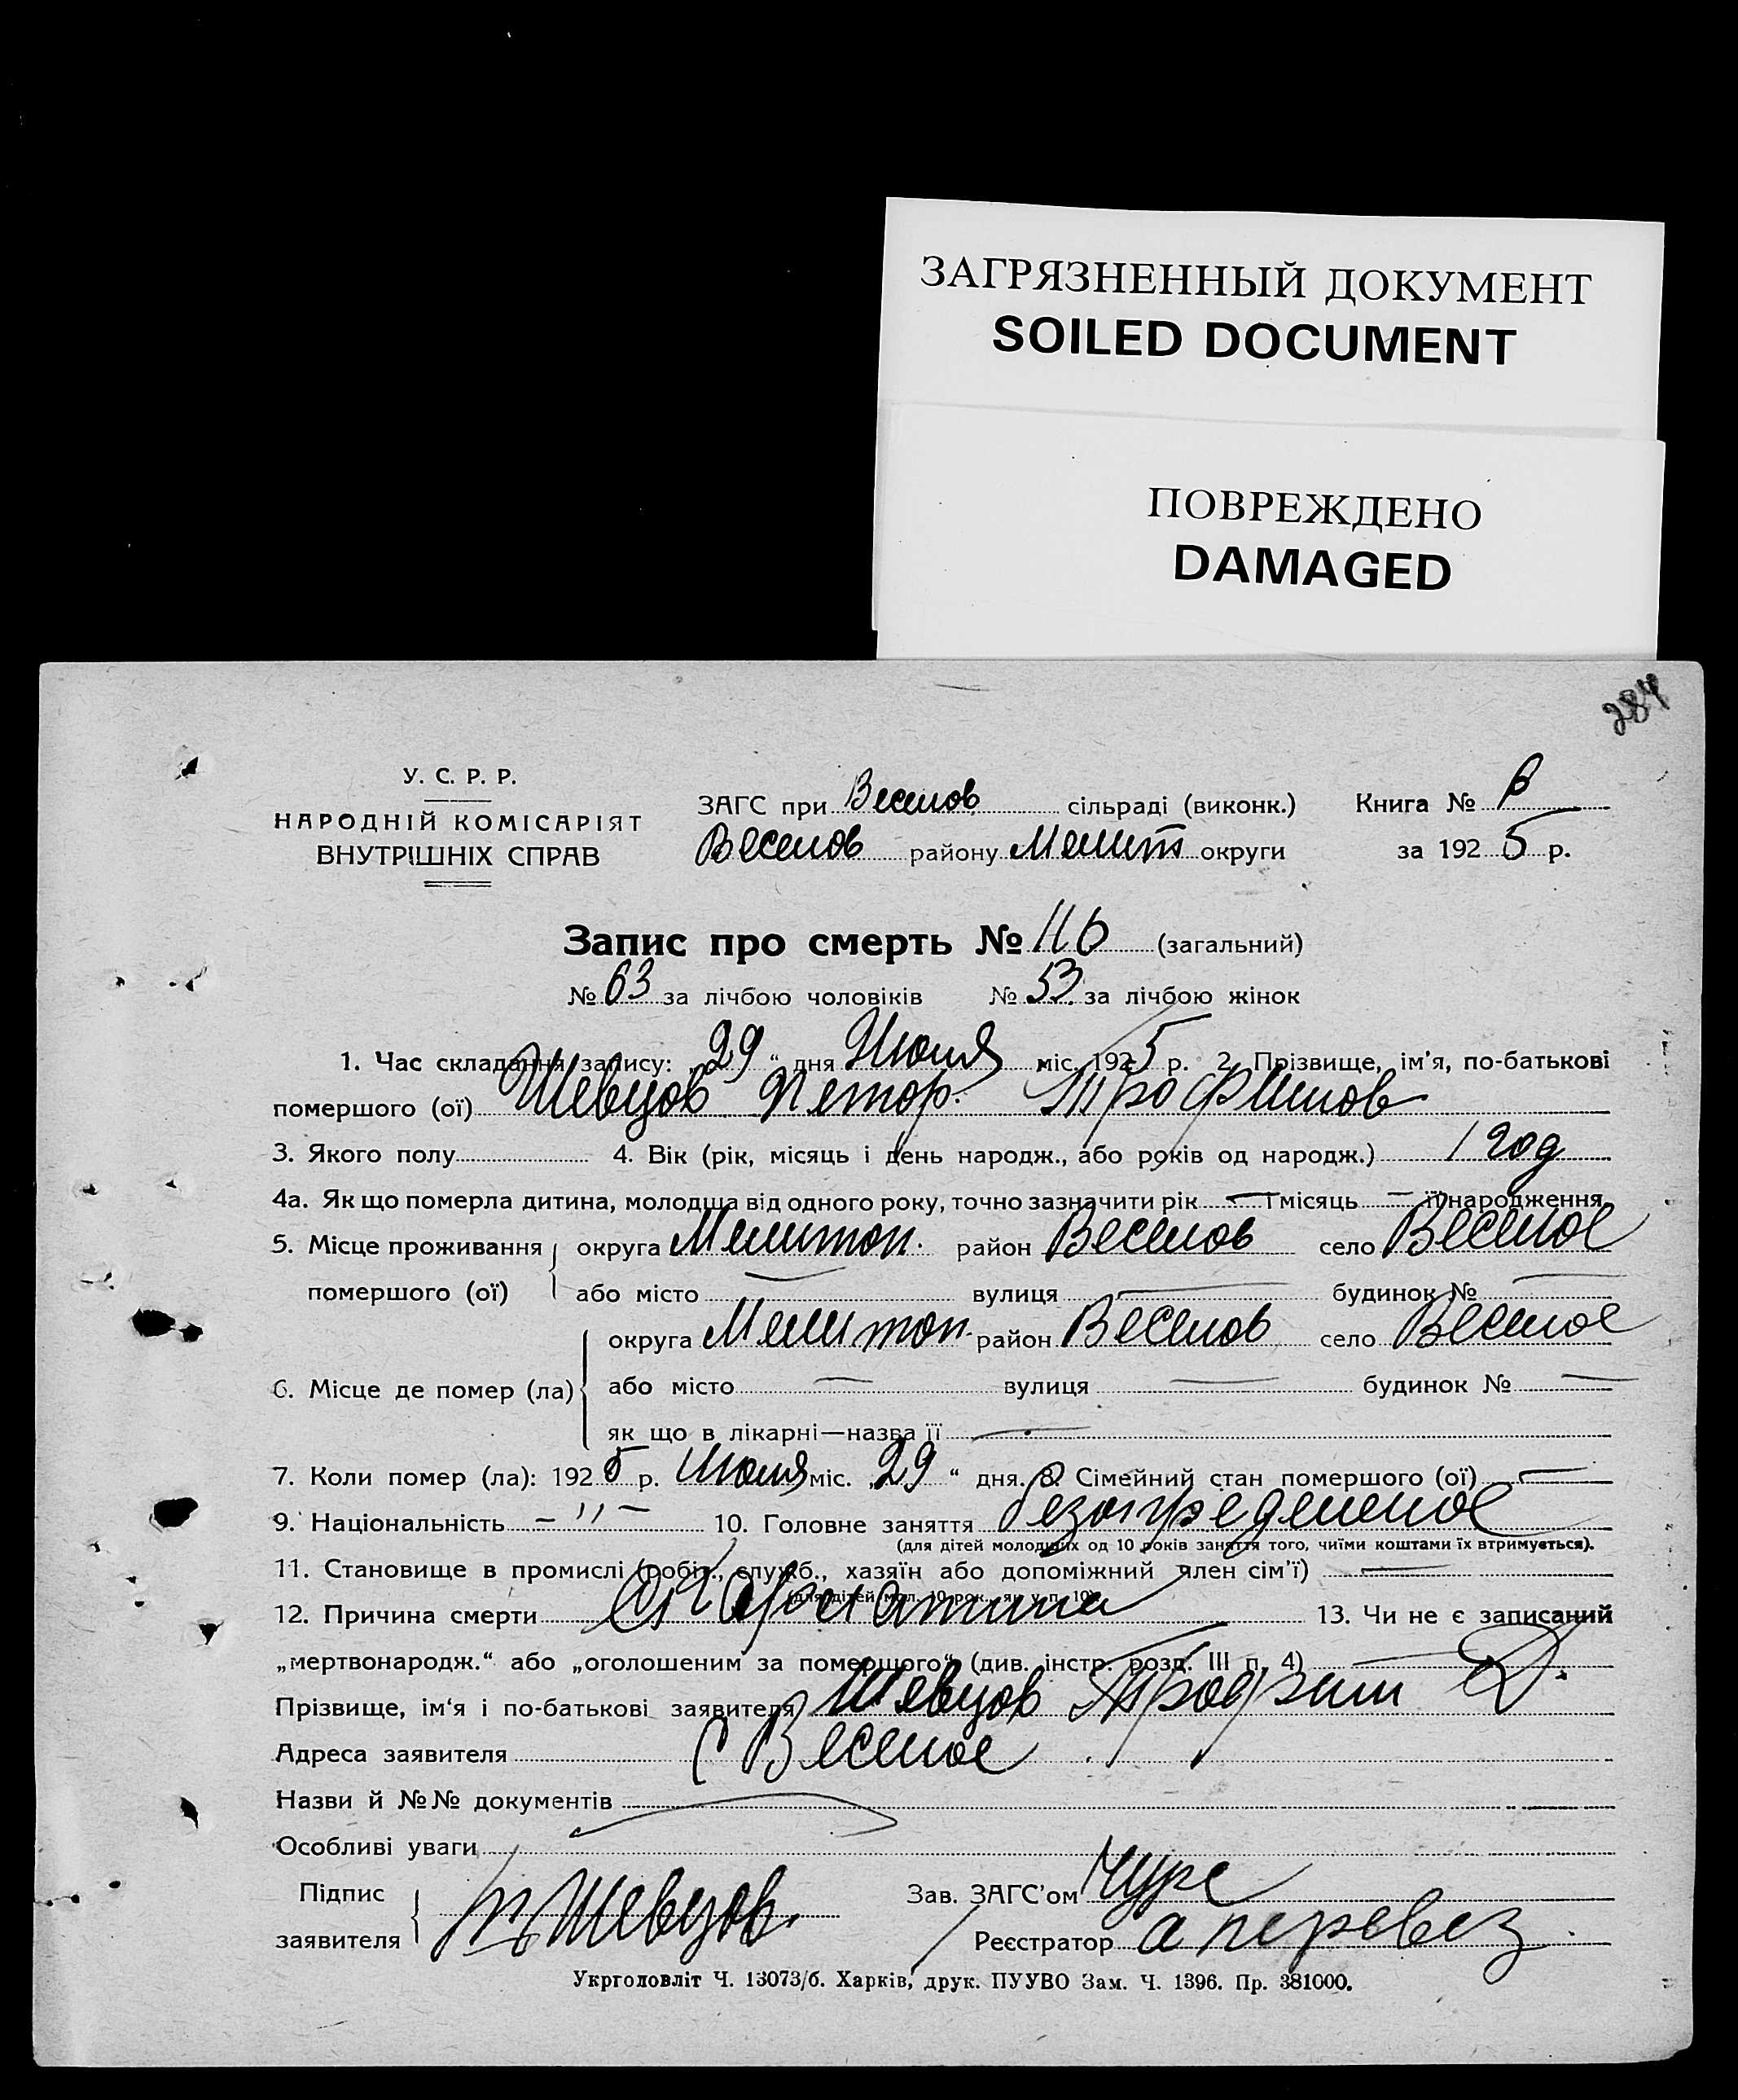 ЗАГРЯЗНЕННЫЙ ДОКУМЕНТ
SOILED DOCUMENT
ПОВРЕЖДЕНО
DAMAGED
284
У. С. Р. Р.
НАРОДНІЙ КОМІСАРІЯТ
ВНУТРІШНІХ СПРАВ
ЗАГС при Веселов сільраді (виконк.) Книга №
Веселов району Мелит округи за 1925 р.
Запис про смерть № 116 (загальний)
№ 63 за лічбою чоловіків № 53 за лічбою жінок
1. Час складання запису: „29“ дня Июля міс. 1925 р. 2. Прізвище, ім'я, по-батькові
помершого (ої) Шевцов Петор. Трофимов
3. Якого полу 4. Вік (рік, місяць і день народж., або років од народж.) 1 год
4а. Як що померла дитина, молодша від одного року, точно зазначити рік — і місяць — її народження
5. Місце проживання округа Мелитоп. район Веселов село Веселое
помершого (ої) або місто — вулиця — будинок № —
округа Мелитоп. район Веселов село Веселое
6. Місце де помер (ла) або місто — вулиця — будинок № —
як що в лікарні—назва її —
7. Коли помер (ла): 1925 р. Июля міс. „29“ дня. 8. Сімейний стан помершого (ої) —
9. Національність – " – 10. Головне заняття
(для дітей молодших од 10 років заняття того, чиїми коштами їх втримується).
11. Становище в промислі (робіт., служб., хазяїн або допоміжний член сім'ї) —
(для дітей мол. 10 рок. як у п. 10)
12. Причина смерти Скарлатина 13. Чи не є записаний
„мертвонародж.“ або „оголошеним за помершого“ (див. інстр. розд. III п. 4) —
Прізвище, ім'я і по-батькові заявителя Шевцов Трофим Д.
Адреса заявителя с Веселое
Назви й №№ документів
Особливі уваги
Підпис
заявителя Шевцов.
Зав. ЗАГС'ом
Реєстратор
Укрголовліт Ч. 13073/б. Харків, друк. ПУУВО Зам. Ч. 1396. Пр. 381000.